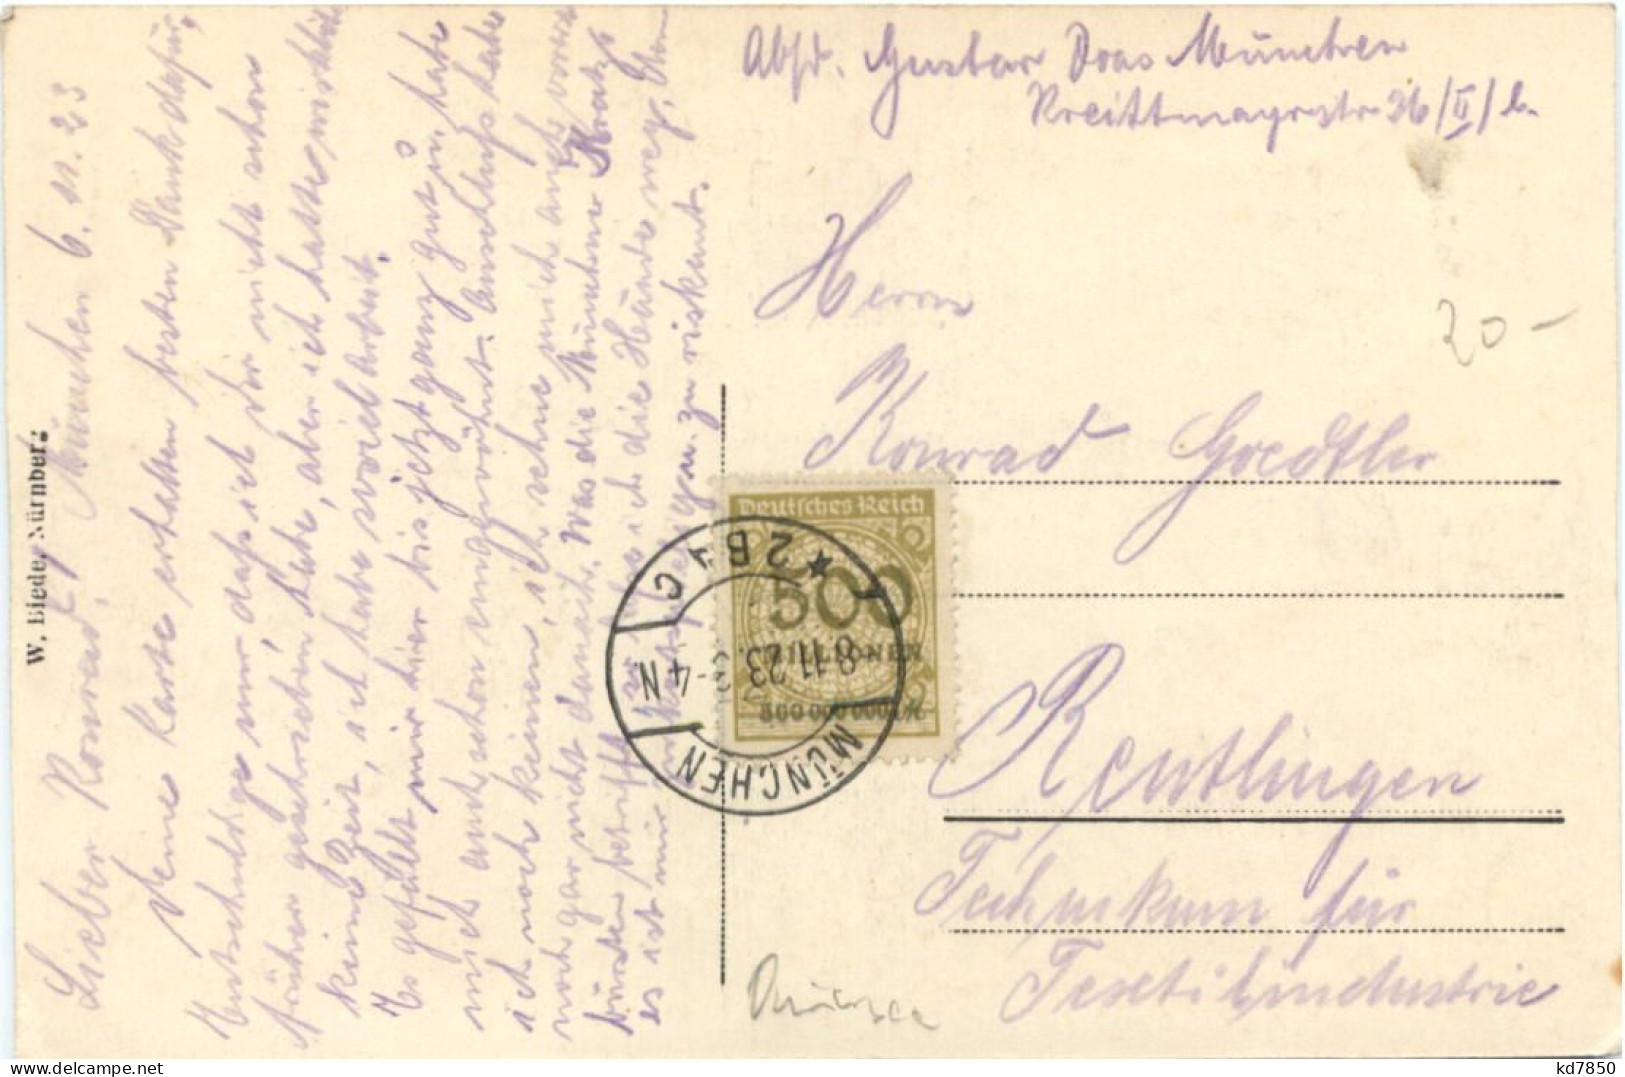 Absd. Gustav Dras München
Kreittmayrstr 36/II/l.
Herrn
Konrad
Reutlingen
Technikum für
Textilindustrie
20 -
Deutsches Reich
500
MILLIONEN
500 000 000
MÜNCHEN
* 2 B 4 C
8.11.23. 3-4 N
W. Biede, Nürnberg
München 6.11.23
Lieber Konrad!
Deine Karte erhalten besten Dank dafür,
Entschuldige nur dass ich Dir nicht schon
früher geschrieben habe, aber ich hatte wirklich
keine Zeit, ich habe soviel Arbeit.
Es gefällt mir hier bis jetzt ganz gut, habe
mich auch schon eingewöhnt. Anschluss habe
ich noch keinen, ich sehne mich auch vorerst
noch gar nicht danach. Was die Münchner
betrifft so ich die Hände weg, denn
es ist mir zu riskant.
kd7850